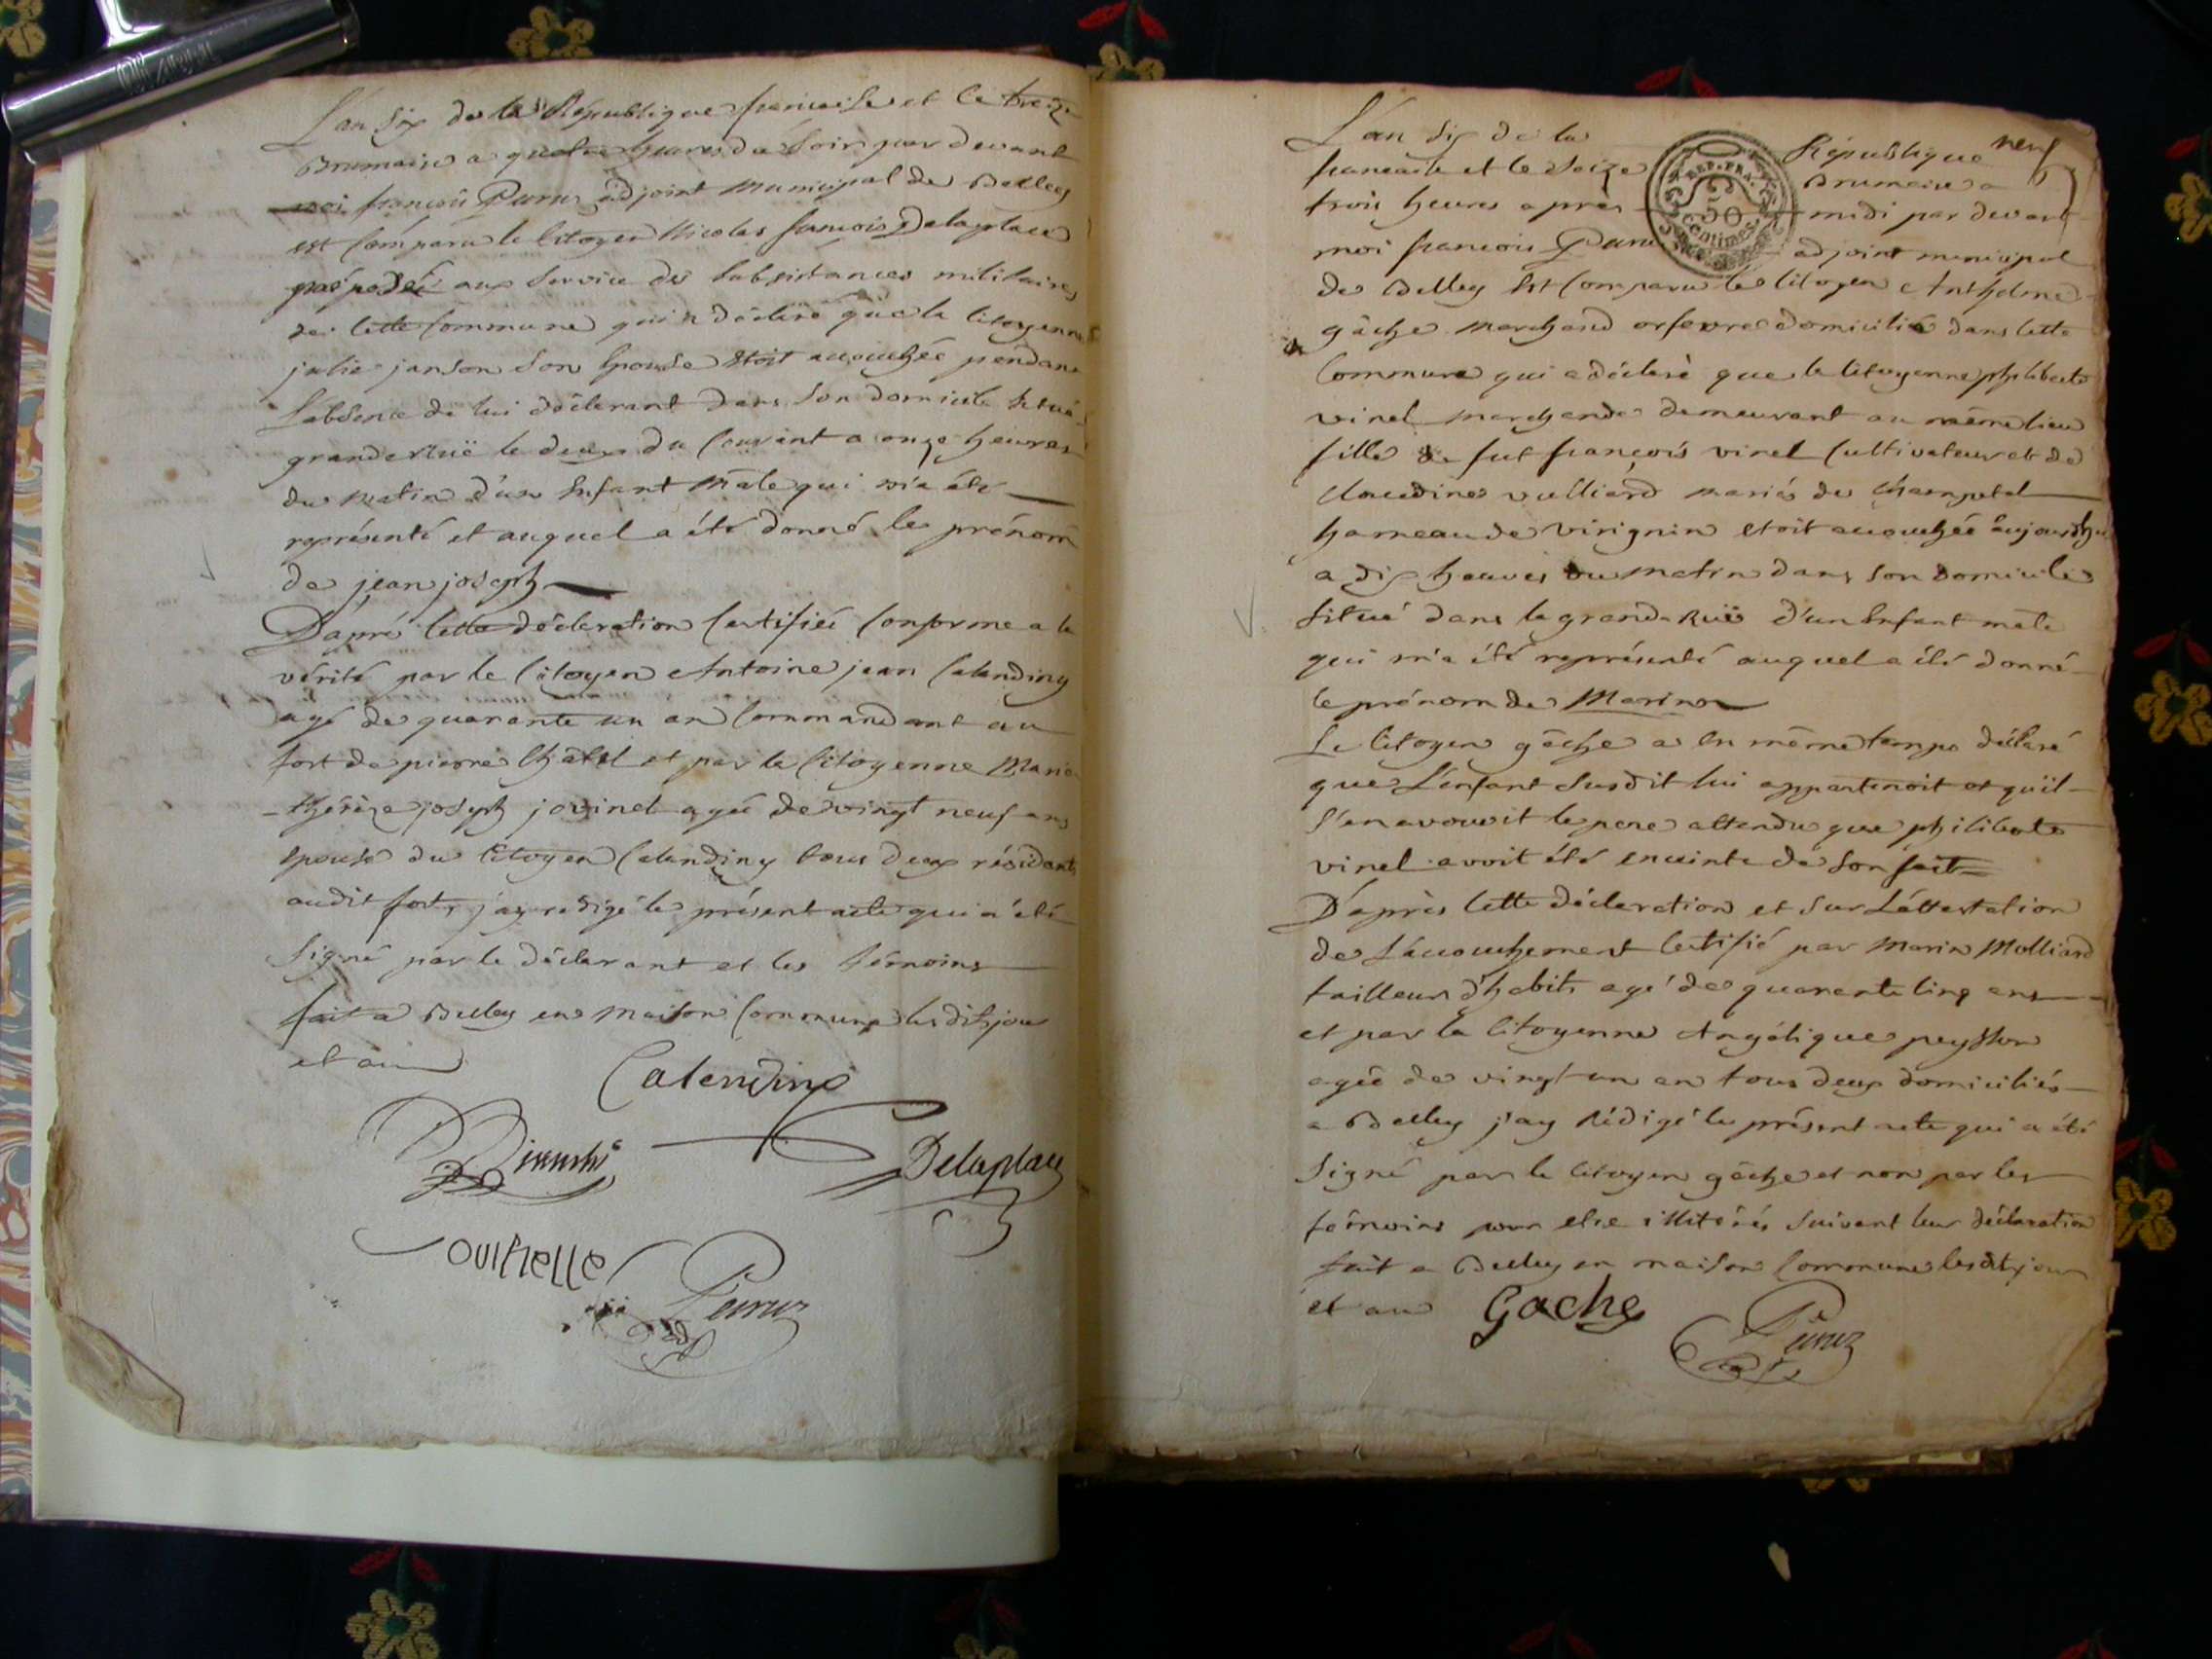 L'an six de la République francaise et le treize
Brumaire a quatre heures du soir par devant
moi francois Peruz adjoint municipal de Belley
est comparu le citoyen Nicolas francois Delaplace
préposé aux service des subsistances militaires
de cette commune qui a déclaré que la citoyenne
julie janson son épouse étoit accouchée pendant
L'absence de lui déclarant dans son domicile situé
grande Ruë le deux du courant a onze heures
du matin d'un enfant mâle qui m'a été
représenté et auquel a été donné le prénom
de jean joseph
D'apré cette déclaration certifiée conforme a la
vérité par le citoyen Antoine jean Calendiny
agé de quarante un an commandant au
fort de pierre chatel et par la citoyenne Marie
thérèze joseph jovinel agée de vingt neuf ans
épouse du citoyen Calendiny tous deux résidants
audit fort, j'ay redigé le présent acte qui a été
signé par le déclarant et les témoins
fait a Belley en maison commune les dits jour
et an
Calendiny
Delaplace
Peruz
adj
neuf
L'an six de la République
francaise et le seize Brumaire a
REP. FRA.
50
centimes
trois heures apres midi par devant
moi francois Peruz adjoint municipal
de Belley est comparu le citoyen Anthelme
gâche marchand orfevre domicilié dans cette
commune qui a déclaré que la citoyenne philiberte
vinel marchande demeurant au même lieu
fille de fut françois vinel cultivateur et de
Claudine vulliard mariés de champtel
hameau de virignin etoit accouchée aujourd'hui
a dix heures du matin dans son domicile
situé dans la grande Ruë d'un enfant mâle
qui m'a été représenté auquel a été donné
le prénom de Marin
Le citoyen gâche a en même temps déclaré
que L'enfant susdit lui appartenoit et qu'il
s'en avouoit le pere attendu que philiberte
vinel avoit été enceinte de son fait
D'après cette déclaration et sur L'attestation
de L'accouchement certifié par Marin Molliard
tailleur d'habits agé de quarante cinq ans
et par la citoyenne Angélique peysson
agée de vingt un an tous deux domiciliés
a Belley j'ay rédigé le présent acte qui a été
signé par le citoyen gâche et non par les
témoins pour etre illitérés suivant leur déclaration
fait a Belley en maison commune les dit jour
et an
Gache
Peruz
adj